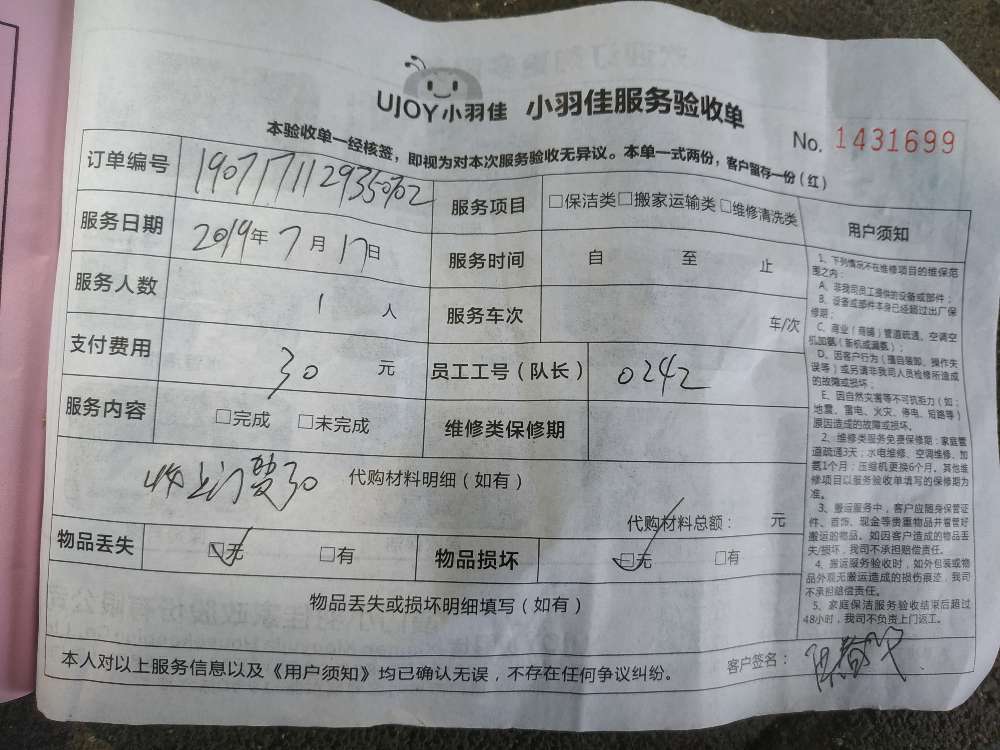 UJOY小羽佳 小羽佳服务验收单
No. 1431699
本验收单一经核签，即视为对本次服务验收无异议。本单一式两份，客户留存一份（红）
订单编号 1907171129350702 服务项目 □保洁类□搬家运输类□维修清洗类
服务日期 2019年7月17日 服务时间 自 至 止
服务人数 1 人 服务车次 车/次
支付费用 30 元 员工工号（队长） 0242
服务内容 □完成 □未完成 维修类保修期
收上门费30 代购材料明细（如有）
代购材料总额： 元
物品丢失 □无 □有 物品损坏 □无 □有
物品丢失或损坏明细填写（如有）
本人对以上服务信息以及《用户须知》均已确认无误，不存在任何争议纠纷。
客户签名：
用户须知
1、下列情况不在维修项目的维保范
围之内：
A、非我司员工提供的设备或部件；
B、设备或部件本身已经超过出厂保
修期；
C、商业（商铺）管道疏通、空调空
机加氨（新机或漏氨）；
D、因客户行为（擅自装卸、操作失
误等）或另请非我司人员检修所造成
的故障或损坏；
E、因自然灾害等不可抗拒力（如：
地震、雷电、火灾、停电、短路等）
原因造成的故障或损坏。
2、维修类服务免费保修期：家庭管
道疏通3天；水电维修、空调维修、加
氨1个月；压缩机更换6个月。其他维
修项目以服务验收单填写的保修期为
准。
3、搬运服务中，客户应随身保管证
件、首饰、现金等贵重物品并看管好
搬运的物品。如因客户造成的物品丢
失/损坏，我司不承担赔偿责任。
4、搬运服务验收时，如外包装或物
品外观无搬运造成的损伤痕迹，我司
不承担赔偿责任。
5、家庭保洁服务验收结束后超过
48小时，我司不负责上门返工。